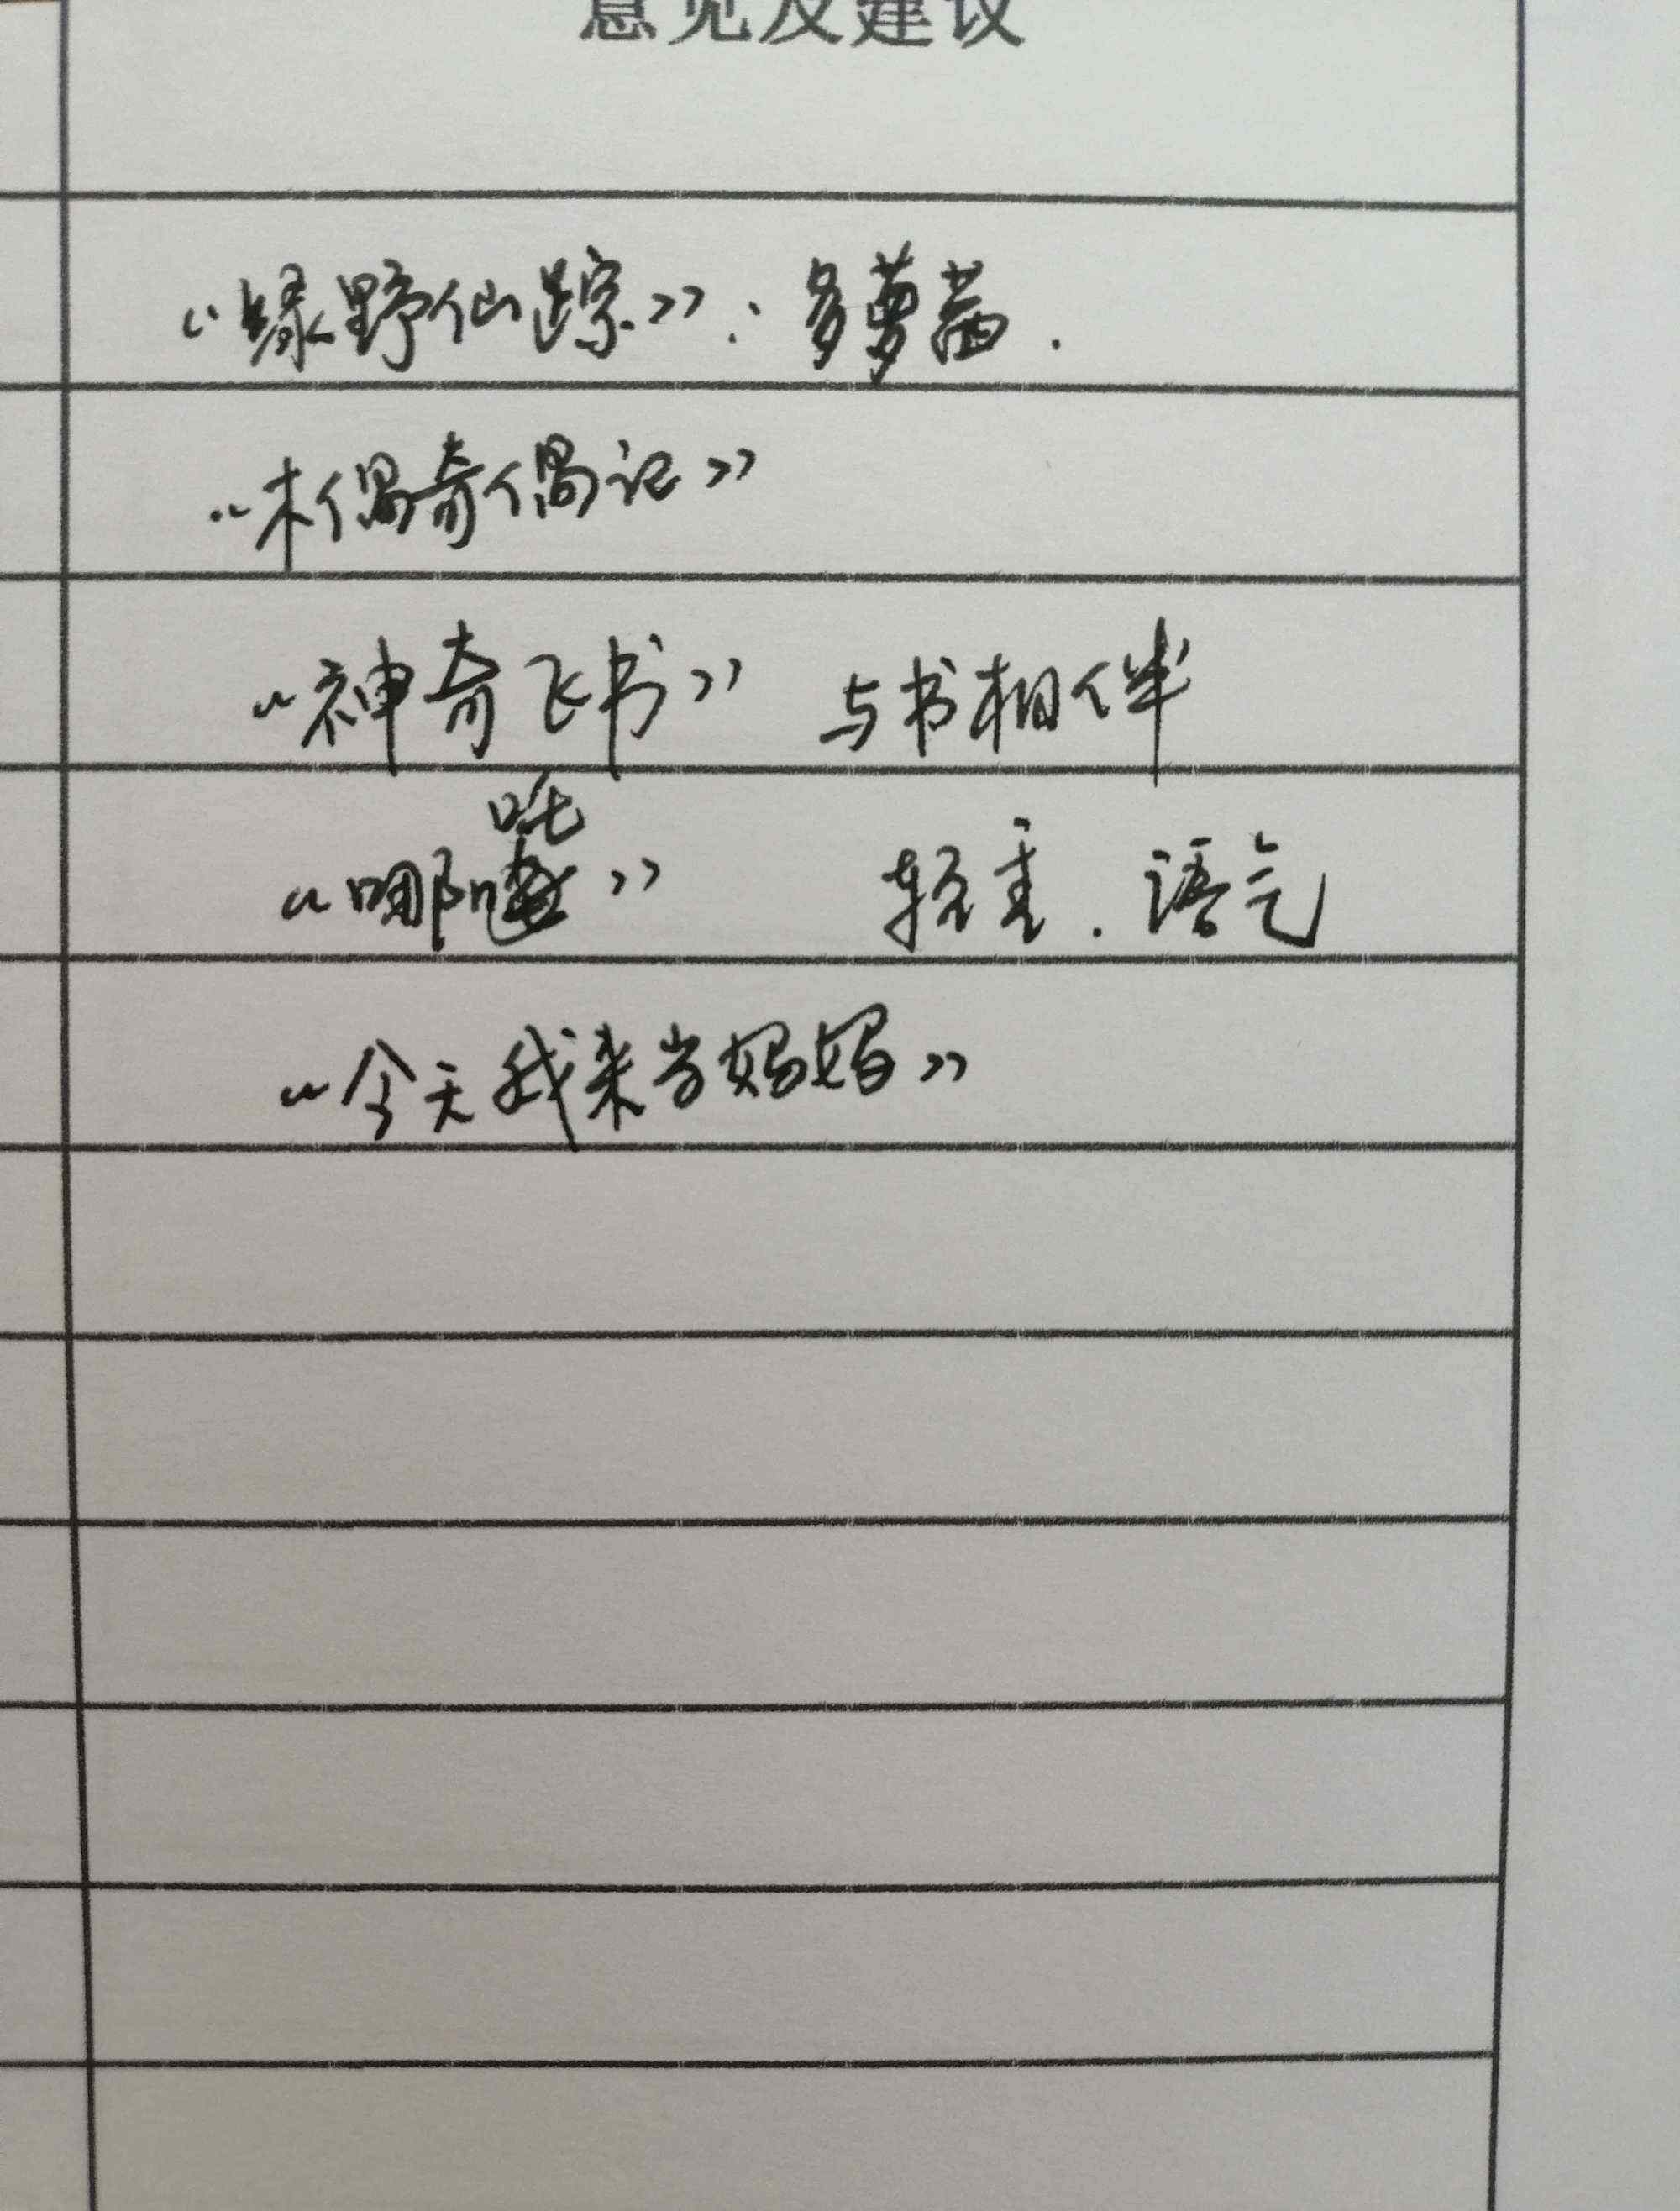 意见及建议
《绿野仙踪》：多萝茜.
《木偶奇偶记》
《神奇飞书》 与书相伴
《哪吒》 轻重.语气
《今天我来当妈妈》